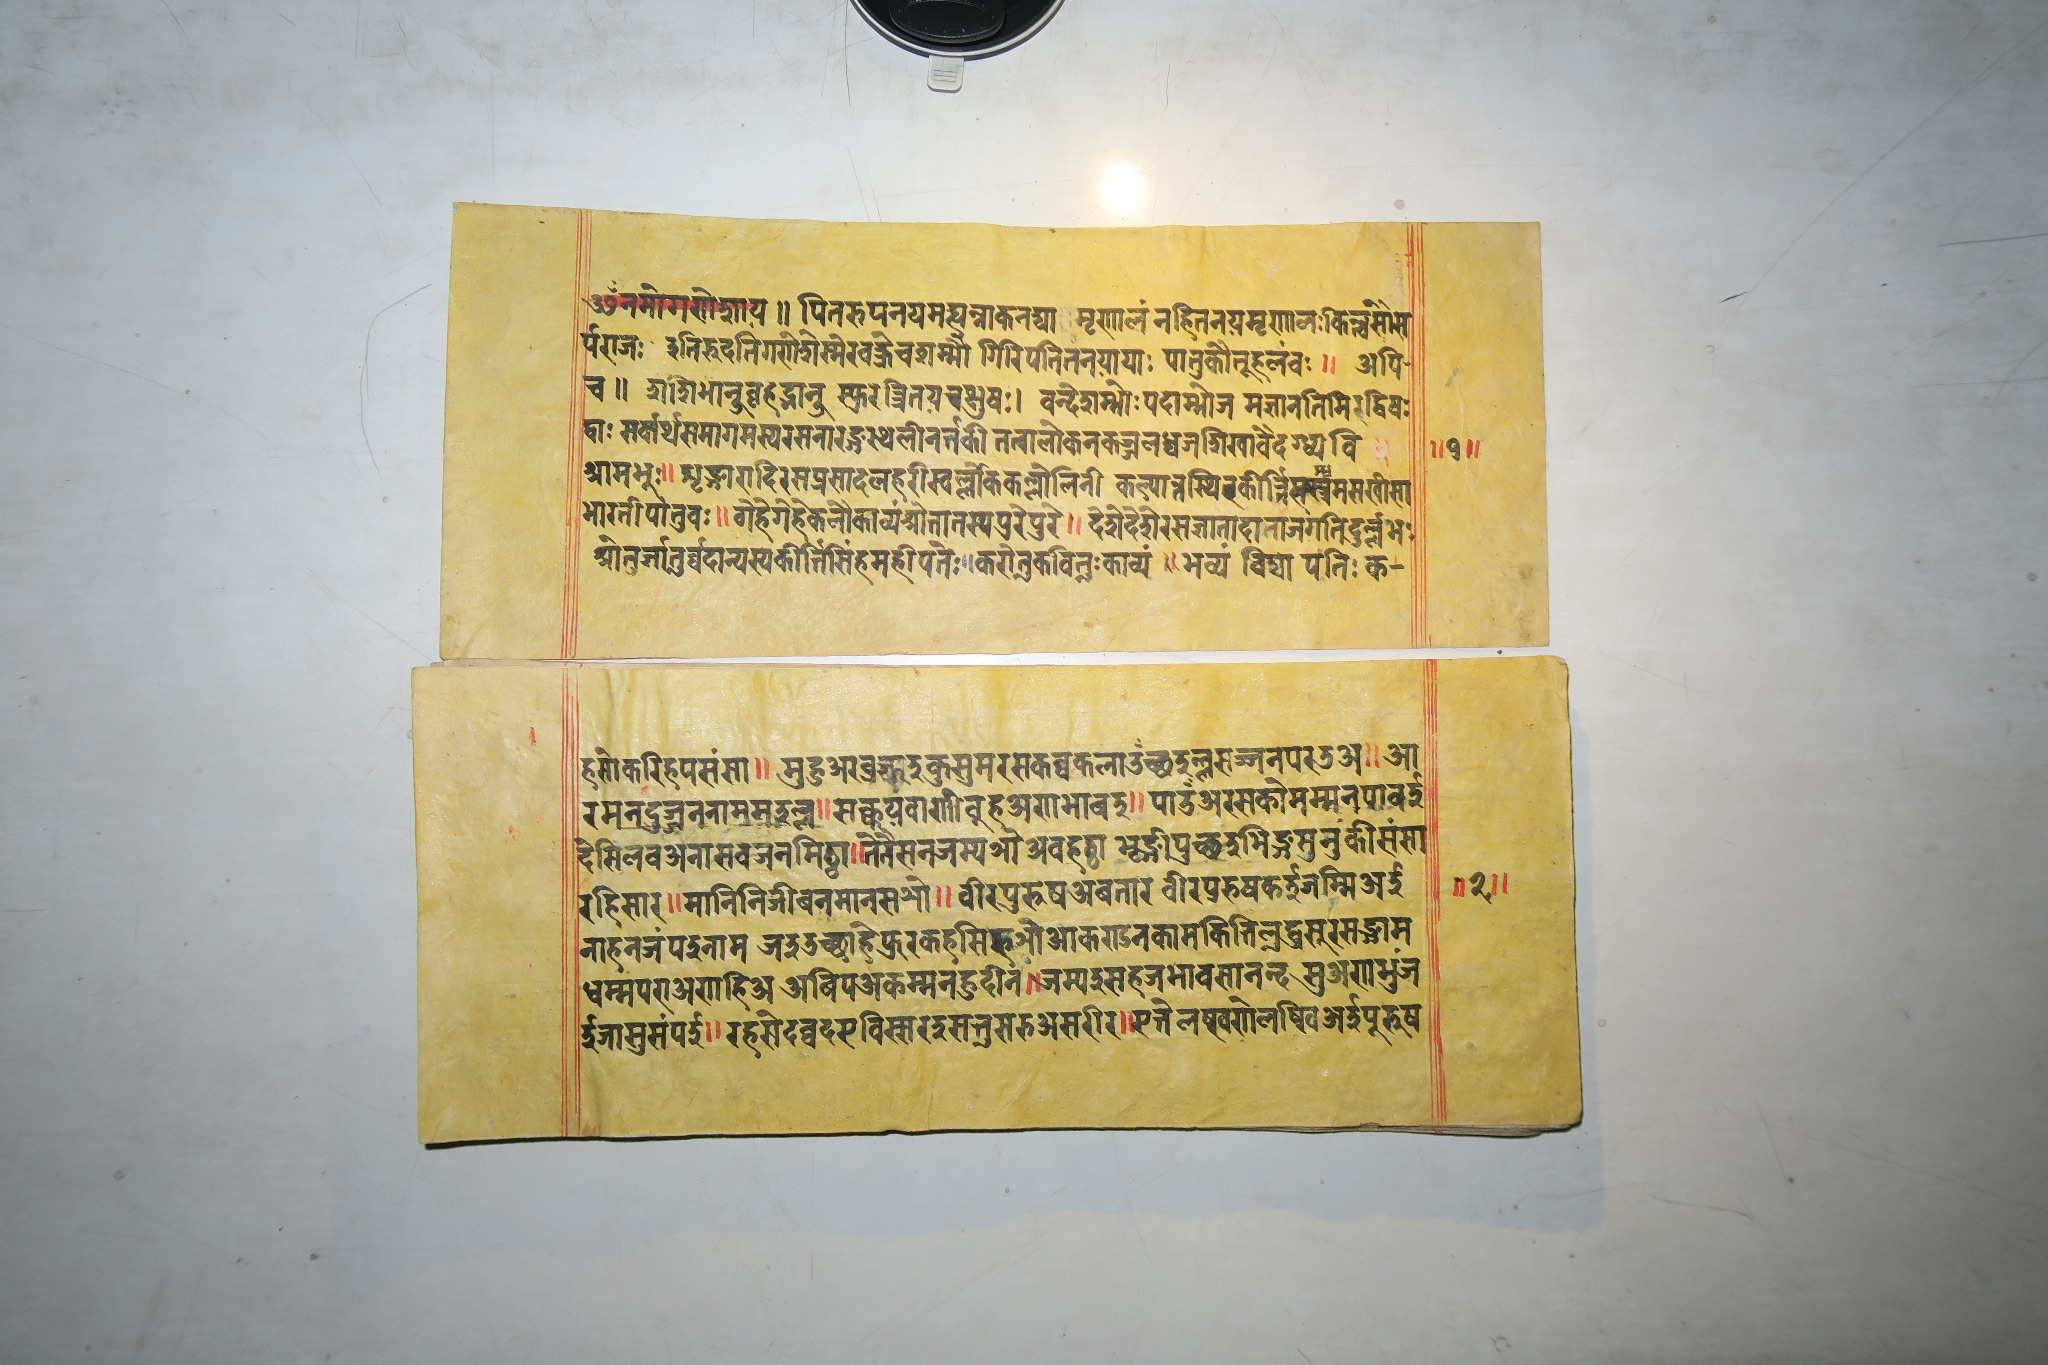 ॐ नमो गणेशाय ॥ पितरुपनयमह्यन्नाकनद्या मृणालं नहितनयमृणालःकिन्त्वसौस
र्पराजः इतिरुदतिगणेशेस्मेरवक्त्रेचशम्भौ गिरिपतितनयायाः पातुकौतूहलंवः ॥ अपि-
च ॥ शशिभानुबृहद्भानु स्फुरत्त्रितयचक्षुषः। वन्देशम्भोःपदाम्भोज मज्ञानतिमिरद्विषः
द्वाः सर्वार्थसमागमस्यरसनारङ्गस्थलीनर्त्तकी तत्वालोकनकज्जलध्वजशिखावैदग्ध्यवि
श्रामभूः॥ शृङ्गारादिरसप्रसादलहरीस्वर्ल्लोककल्लोलिनी कल्पान्तस्थिरकीर्त्तिसम्भ्रमसखीसा
भारतीपातुवः॥ गेहेगेहेकलौकाव्यंश्रोतातस्यपुरेपुरे॥ देशेदेशेरसज्ञातादाताजगतिदुर्ल्लभः
श्रोतुर्ज्ञातुर्व्वदान्यस्यकीर्त्तिसिंहमहीपतेः॥करोतुकवितुःकाव्यं ॥ भव्यं विद्यापतिः क-
॥१॥
हसोकरिहपसंसा॥ मुहुअरबुज्झइकुसुमरसकव्वकलाउंच्छइल्लसज्जनपरउअ॥ आ
रमनदुज्जननाममइल्ल॥सक्कयवाणीबुहअणभाबइ॥ पाउंअरसकोमम्मनपाबई
देसिलवअनासवजनमिट्ठा॥तेतैसनजम्पओअवहट्ठा भृङ्गीपुच्छइभिङ्गसुनुकीसंसा
रहिसार॥मानिनिजीबनमानसओ॥ वीरपुरुषअबतार वीरपुरुषकइजम्मिअई
नाहनजंपइनाम जइउच्छाहेफुरकहसिहओआकराडनकामकित्तिलुद्धसूरसङ्गाम
धर्ममपराअणहिअ अबिपअकम्मनहुदीन॥जम्पइसहजभावसानन्द मुअणभुंज
ईजासुसंपई॥ रहसेदव्वदएविस्सरइसत्तुसरुअसरीर॥एत्तेलष्षणेलषिवअईपूरुष
॥२॥